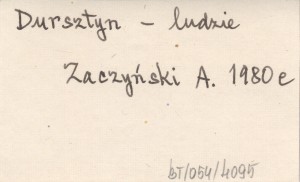 Dursztyn - ludzie
Zaczyński A. 1980 e
bT/054/4095